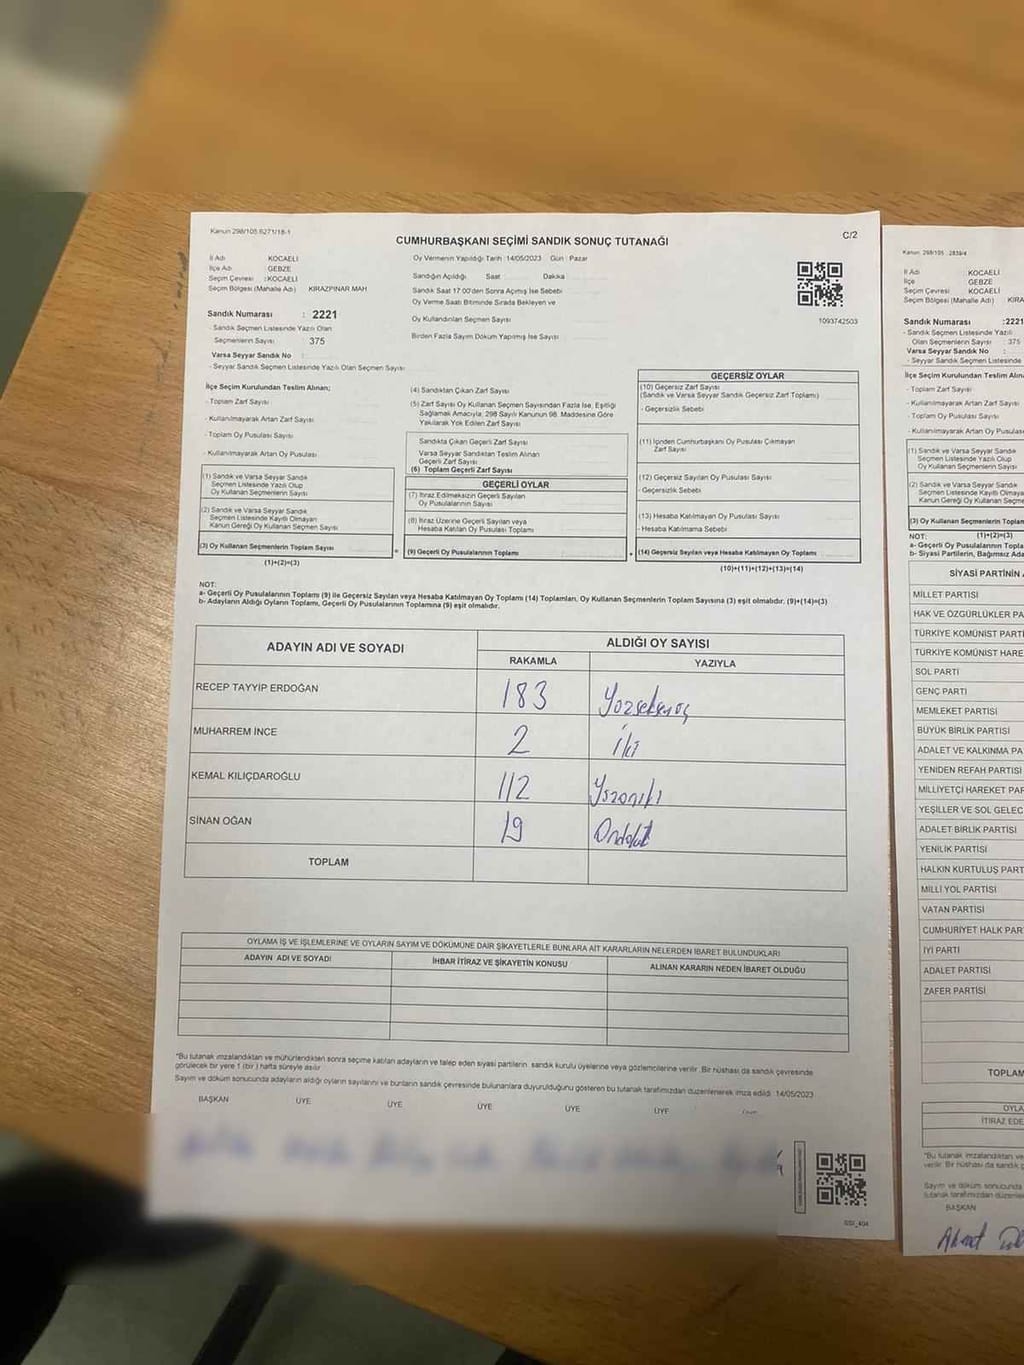 Kanun 298/105 6271/18-1
CUMHURBAŞKANI SEÇİMİ SANDIK SONUÇ TUTANAĞI
C/2
İl Adı KOCAELİ
İlçe Adı GEBZE
Seçim Çevresi : KOCAELİ
Seçim Bölgesi (Mahalle Adı) KIRAZPINAR MAH
Sandık Numarası : 2221
- Sandık Seçmen Listesinde Yazılı Olan
Seçmenlerin Sayısı 375
Varsa Seyyar Sandık No :
- Seyyar Sandık Seçmen Listesinde Yazılı Olan Seçmen Sayısı
Oy Vermenin Yapıldığı Tarih : 14/05/2023 Gün : Pazar
Sandığın Açıldığı Saat Dakika
Sandık Saat 17:00'den Sonra Açılmış İse Sebebi
Oy Verme Saati Bitiminde Sırada Bekleyen ve
Oy Kullandırılan Seçmen Sayısı
Birden Fazla Sayım Döküm Yapılmış İse Sayısı
1093742503
İlçe Seçim Kurulundan Teslim Alınan;
- Toplam Zarf Sayısı
- Kullanılmayarak Artan Zarf Sayısı
- Toplam Oy Pusulası Sayısı
- Kullanılmayarak Artan Oy Pusulası
(1) Sandık ve Varsa Seyyar Sandık
Seçmen Listesinde Yazılı Olup
Oy Kullanan Seçmenlerin Sayısı
(2) Sandık ve Varsa Seyyar Sandık
Seçmen Listesinde Kayıtlı Olmayan
Kanun Gereği Oy Kullanan Seçmen Sayısı
(3) Oy Kullanan Seçmenlerin Toplam Sayısı
(1)+(2)=(3)
(4) Sandıktan Çıkan Zarf Sayısı
(5) Zarf Sayısı Oy Kullanan Seçmen Sayısından Fazla İse, Eşitliği
Sağlamak Amacıyla, 298 Sayılı Kanunun 98. Maddesine Göre
Yakılarak Yok Edilen Zarf Sayısı
Sandıkta Çıkan Geçerli Zarf Sayısı
Varsa Seyyar Sandıktan Teslim Alınan
Geçerli Zarf Sayısı
(6) Toplam Geçerli Zarf Sayısı
GEÇERLİ OYLAR
(7) İtiraz Edilmeksizin Geçerli Sayılan
Oy Pusulalarının Sayısı
(8) İtiraz Üzerine Geçerli Sayılan veya
Hesaba Katılan Oy Pusulası Toplamı
(9) Geçerli Oy Pusulalarının Toplamı
GEÇERSİZ OYLAR
(10) Geçersiz Zarf Sayısı
(Sandık ve Varsa Seyyar Sandık Geçersiz Zarf Toplamı)
- Geçersizlik Sebebi
(11) İçinden Cumhurbaşkanı Oy Pusulası Çıkmayan
Zarf Sayısı
(12) Geçersiz Sayılan Oy Pusulası Sayısı
- Geçersizlik Sebebi
(13) Hesaba Katılmayan Oy Pusulası Sayısı
- Hesaba Katılmama Sebebi
(14) Geçersiz Sayılan veya Hesaba Katılmayan Oy Toplamı
(10)+(11)+(12)+(13)=(14)
NOT:
a- Geçerli Oy Pusulalarının Toplamı (9) ile Geçersiz Sayılan veya Hesaba Katılmayan Oy Toplamı (14) Toplamları, Oy Kullanan Seçmenlerin Toplam Sayısına (3) eşit olmalıdır. (9)+(14)=(3)
b- Adayların Aldığı Oyların Toplamı, Geçerli Oy Pusulalarının Toplamına (9) eşit olmalıdır.
ADAYIN ADI VE SOYADI ALDIĞI OY SAYISI
RAKAMLA YAZIYLA
RECEP TAYYİP ERDOĞAN 183 Yüzseksenüç
MUHARREM İNCE 2 İki
KEMAL KILIÇDAROĞLU 112 Yüzoniki
SİNAN OĞAN 19 Ondokuz
TOPLAM
OYLAMA İŞ VE İŞLEMLERİNE VE OYLARIN SAYIM VE DÖKÜMÜNE DAİR ŞİKAYETLERLE BUNLARA AİT KARARLARIN NELERDEN İBARET BULUNDUKLARI
ADAYIN ADI VE SOYADI İHBAR İTİRAZ VE ŞİKAYETİN KONUSU ALINAN KARARIN NEDEN İBARET OLDUĞU
*Bu tutanak imzalandıktan ve mühürlendikten sonra seçime katılan adayların ve talep eden siyasi partilerin sandık kurulu üyelerine veya gözlemcilerine verilir. Bir nüshası da sandık çevresinde
görülecek bir yere 1 (bir) hafta süreyle asılır
Sayım ve döküm sonucunda adayların aldığı oyların sayılarını ve bunların sandık çevresinde bulunanlara duyurulduğunu gösteren bu tutanak tarafımızdan düzenlenerek imza edildi. 14/05/2023
BAŞKAN ÜYE ÜYE ÜYE ÜYE ÜYE
Kanun 298/105 2839/4
İl Adı KOCAELİ
İlçe GEBZE
Seçim Çevresi KOCAELİ
Seçim Bölgesi (Mahalle Adı) KIRA
Sandık Numarası :2221
- Sandık Seçmen Listesinde Yazılı
Olan Seçmenlerin Sayısı : 375
Varsa Seyyar Sandık No :
- Seyyar Sandık Seçmen Listesinde
İlçe Seçim Kurulundan Teslim Alınan
- Toplam Zarf Sayısı
- Kullanılmayarak Artan Zarf Sayısı
- Toplam Oy Pusulası Sayısı
- Kullanılmayarak Artan Oy Pusulası
(1) Sandık ve Varsa Seyyar Sandık
Seçmen Listesinde Yazılı Olup
Oy Kullanan Seçmenlerin Sayısı
(2) Sandık ve Varsa Seyyar Sandık
Seçmen Listesinde Kayıtlı Olmaya
Kanun Gereği Oy Kullanan Seçme
(3) Oy Kullanan Seçmenlerin Toplam
(1)+(2)=(3)
NOT:
a- Geçerli Oy Pusulalarının Topla
b- Siyasi Partilerin, Bağımsız Ada
SİYASİ PARTİNİN
MİLLET PARTİSİ
HAK VE ÖZGÜRLÜKLER PA
TÜRKİYE KOMÜNİST PARTİ
TÜRKİYE KOMÜNİST HARE
SOL PARTİ
GENÇ PARTİ
MEMLEKET PARTİSİ
BÜYÜK BİRLİK PARTİSİ
ADALET VE KALKINMA PA
YENİDEN REFAH PARTİSİ
MİLLİYETÇİ HAREKET PAR
YEŞİLLER VE SOL GELEC
ADALET BİRLİK PARTİSİ
YENİLİK PARTİSİ
HALKIN KURTULUŞ PART
MİLLİ YOL PARTİSİ
VATAN PARTİSİ
CUMHURİYET HALK PAR
İYİ PARTİ
ADALET PARTİSİ
ZAFER PARTİSİ
TOPLAM
OYLA
İTİRAZ EDE
*Bu tutanak imzalandıktan ve
verilir. Bir nüshası da sandık ç
Sayım ve döküm sonucunda
tutanak tarafımızdan düzenle
BAŞKAN
Ahmet